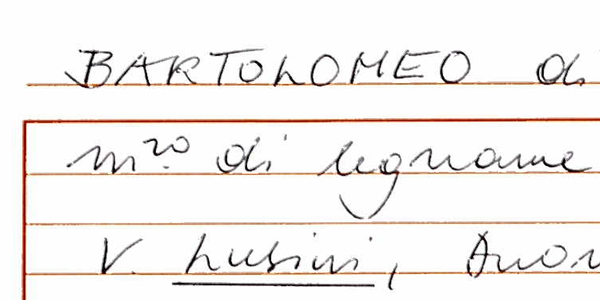 BARTOLOMEO di
m^ro. di legname
V. Lusini,